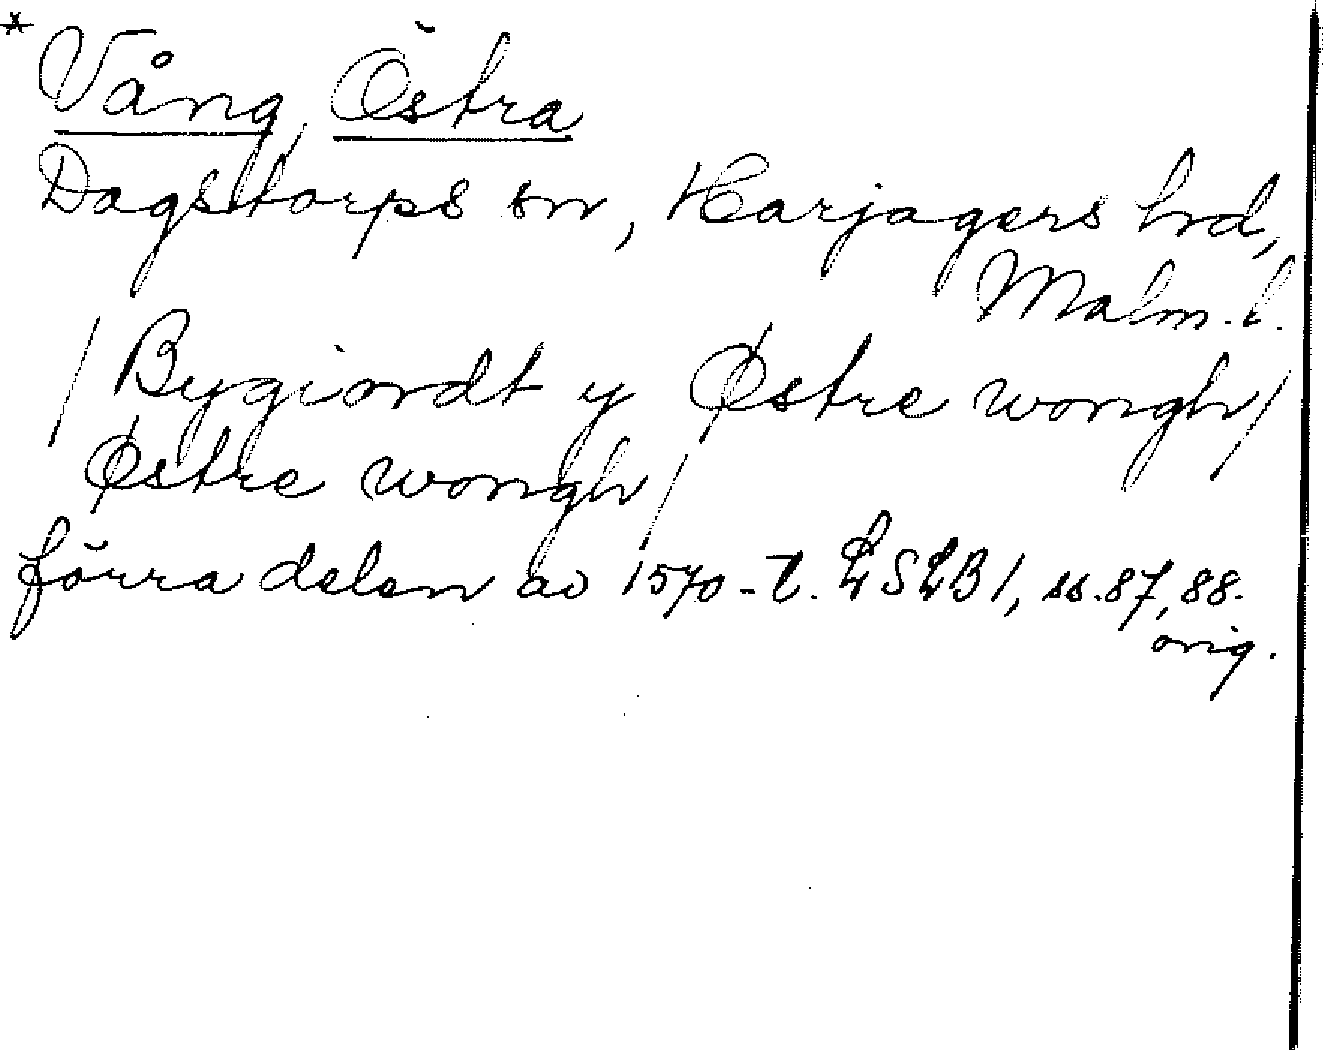 * Vång, Östra
Dagstorps sn, Harjagers hrd,
Malm. l.
/ Bygiordt y Østre wongh /
Østre wongh /
förra delen av 1570-t. LSLB 1, ss. 87, 88.
orig.